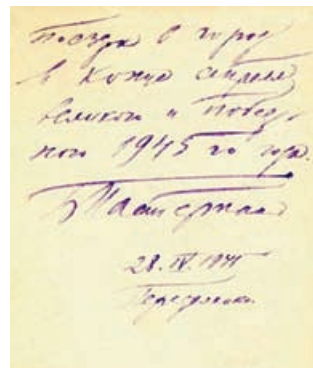 Поездка в город
в конце апреля
великого и побед-
ного 1945 го года.
Б Пастернак
28. IV. 1945
Переделкино.